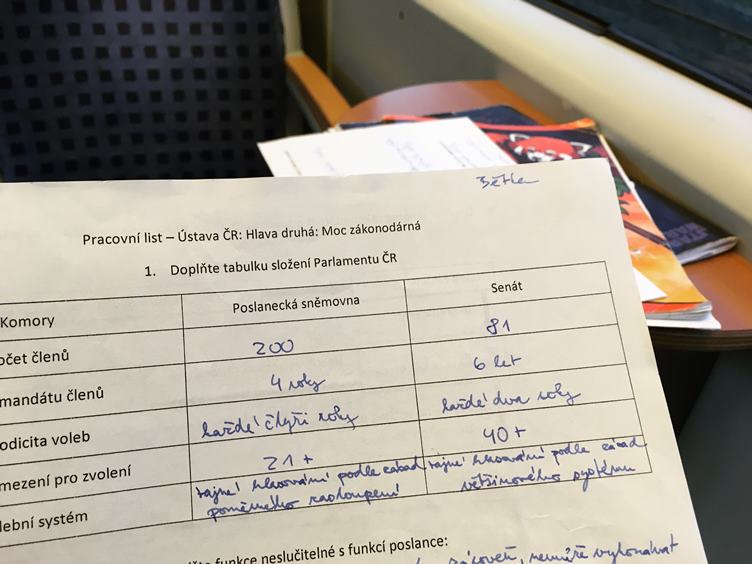 Běťka
Pracovní list – Ústava ČR: Hlava druhá: Moc zákonodárná
1. Doplňte tabulku složení Parlamentu ČR
Komory Poslanecká sněmovna Senát
očet členů 200 81
mandátu členů 4 roky 6 let
odicita voleb každé čtyři roky každé dva roky
mezení pro zvolení 21+ 40+
lební systém tajné hlasování podle zásad tajné hlasování podle zásad
poměrného zastoupení většinového systému
te funkce neslučitelné s funkcí poslance:
vykonávat